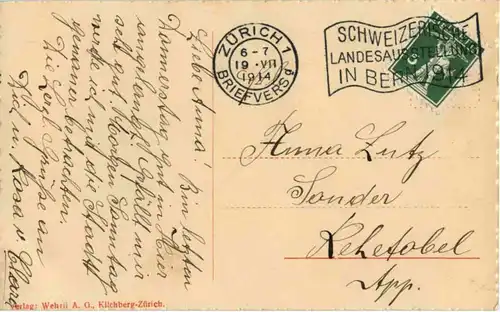 Liebe Anna! Bin letzten
Donnerstag gut in hier
angelangt. Gefällt mir
sehr gut. Morgen Sonntag
werde ich mir die Stadt
genauer betrachten.
Die Grüsse an
u. Rosa v.
ZÜRICH 1
6-7
19·VII
1914
BRIEFVERSd
SCHWEIZERISCHE
LANDESAUSSTELLUNG
IN BERN 1914
Anna Lutz
Sonder
Rehetobel
App.
Verlag: Wehrli A. G., Kilchberg-Zürich.